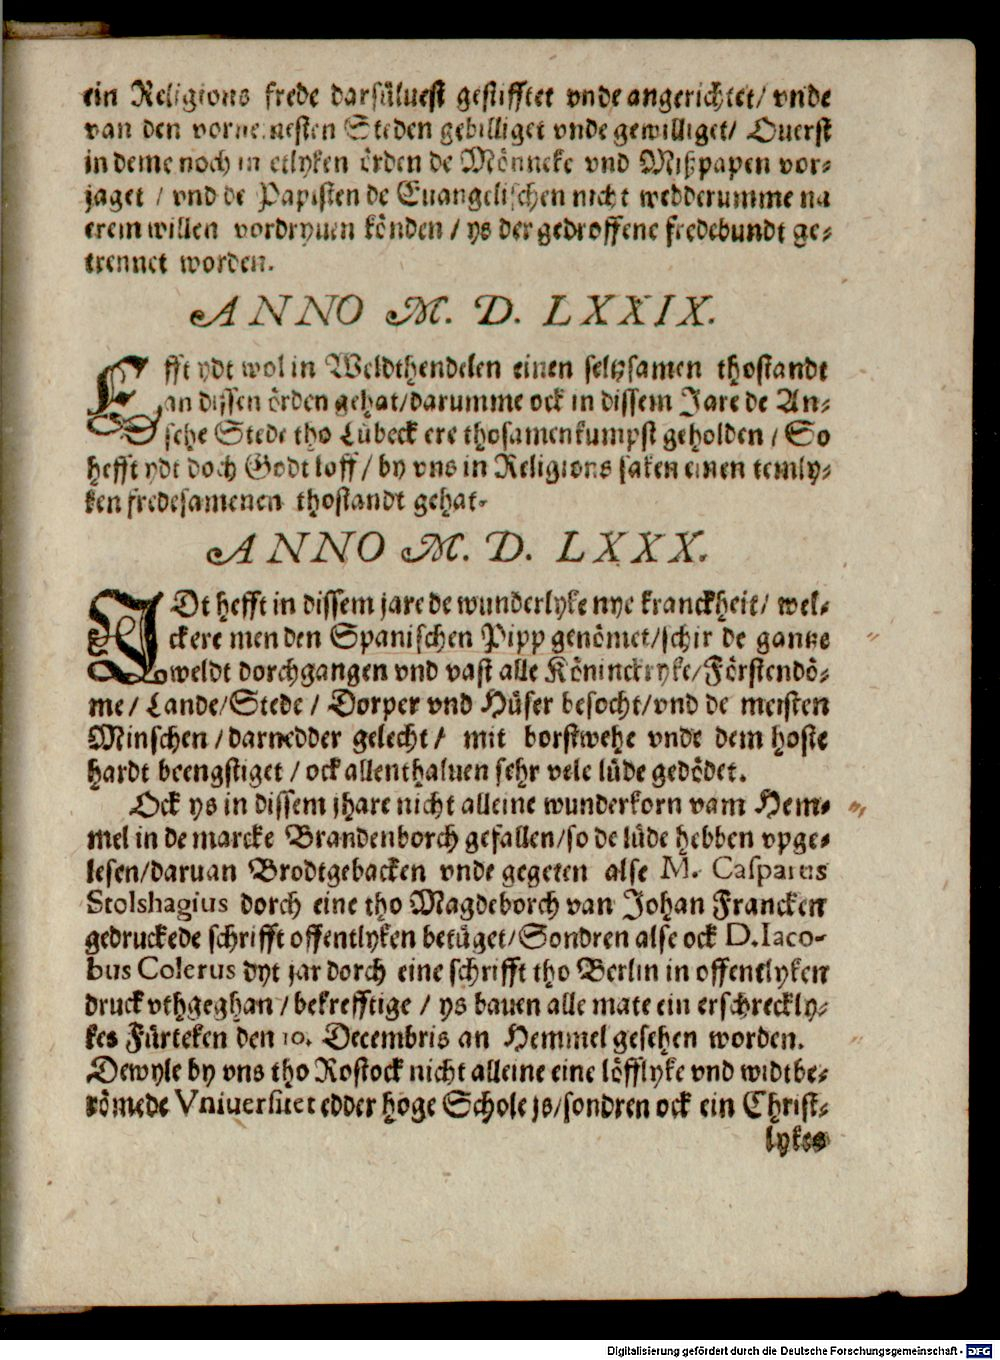 ein Religions frede darsüluest gestifftet vnde angerichtet/ vnde
van den vornemesten Steden gebilliget vnde gewilliget/ Ouerst
in deme noch in etlyken örden de Mönneke vnd Mißpapen vor-
jaget / vnd de Papisten de Euangelischen nicht wedderumme na
erem willen vordryuen könden / ys der gedroffene fredebundt ge-
trennet worden.
ANNO M. D. LXXIX.
Efft ydt wol in Weldthendelen einen seltzamen thostandt
an dissen örden gehat/darumme ock in dissem Jare de An-
sche Stede tho Lübeck ere thosamenkumpst geholden / So
hefft ydt doch Godt loff/ by vns in Religions saken einen temly-
ken fredesamenen thostandt gehat.
ANNO M. D. LXXX.
IDt hefft in dissem jare de wunderlyke nye kranckheit/ wel-
ckere men den Spanischen Pipp genömet/schir de gantze
weldt dorchgangen vnd vast alle Köninckryke/Förstendö-
me/ Lande/Stede / Dorper vnd Hüser besocht/vnd de meisten
Minschen /darnedder gelecht/ mit borstwehe vnde dem hoste
hardt beengstiget /ock allenthaluen sehr vele lüde gedödet.
Ock ys in dissem jhare nicht alleine wunderkorn vam Hem-
mel in de marcke Brandenborch gefallen/so de lüde hebben vpge-
lesen/daruan Brodtgebacken vnde gegeten alse M. Casparus
Stolshagius dorch eine tho Magdeborch van Johan Francken
gedruckede schrifft offentlyken betüget/Sondren alse ock D. Iaco-
bus Colerus dyt jar dorch eine schrifft tho Berlin in offentlyken
druck vthgeghan /bekrefftige / ys bauen alle mate ein erschreckly-
kes Fürteken den 10. Decembris an Hemmel gesehen worden.
Dewyle by vns tho Rostock nicht alleine eine löfflyke vnd widtbe-
römede Vniuersitet edder hoge Schole js/sondren ock ein Christ-
lykes
Digitalisierung gefördert durch die Deutsche Forschungsgemeinschaft - DFG